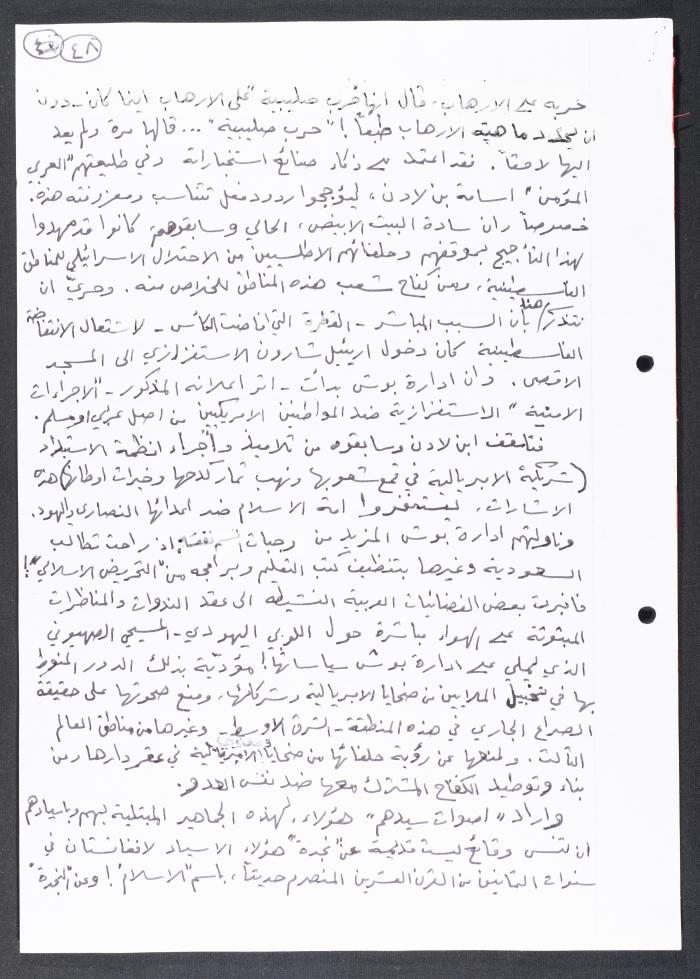 ٤٨
حربه على الارهاب، قال انها حرب صليبية على الارهاب اينما كان - دون
ان يحدد ماهية الارهاب طبعاً! "حرب صليبية" ... قالها مرة ولم يعد
اليها لاحقاً. فقد اعتمد على ذكاء صنائع استخباراته وفي طليعتهم "العربي
المؤمن" اسامة بن لادن، ليؤججوا ردود فعل تتناسب ومغزى هذه.
خصوصاً وان سادة البيت الابيض، الحالي وسابقوهم، كانوا قد مهدوا
لهذا التأجيج بموقفهم وحلفائهم الاطلسيين من الاحتلال الاسرائيلي للمناطق
الفلسطينية، ومن كفاح شعب هذه المناطق للخلاص منه. وحريّ ان
نتذكر هنا بأن السبب المباشر - القطرة التي افاضت الكأس - لاشتعال الانتفاضة
الفلسطينية كان دخول اريئيل شارون الاستفزازي الى المسجد
الاقصى. وان ادارة بوش بدأت - اثر اعلانه المذكور - "الاجراءات
الامنية" الاستفزازية ضد المواطنين الامريكيين من اصل عربي او مسلم.
فتلقف ابن لادن وسابقوه من تلاميذ وأجراء انظمة الاستبداد
(شريكة الامبريالية في قمع شعوبها ونهب ثمار كدحها وخيرات اوطانها) هذه
الاشارات، ليستنفروا امة الاسلام ضد اعدائها النصارى واليهود.
وناولتهم ادارة بوش المزيد من وجبات اذ راحت تطالب
السعودية وغيرها بتنظيف كتب التعليم وبرامجه من "التحريض الاسلامي"!
فانبرت بعض الفضائيات العربية النشيطة الى عقد الندوات والمناظرات
المبثوثة على الهواء مباشرة حول اللوبي اليهودي - المسيحي الصهيوني
الذي يملي على ادارة بوش سياساتها! مؤدّية بذلك الدور المنوط
بها في تخبيل الملايين من ضحايا الامبريالية وشركائها، ومنع صحوتها على حقيقة
الصراع الجاري في هذه المنطقة - الشرق الاوسط - وغيرها من مناطق العالم
الثالث. ولمنعها عن رؤية حلفائها من ضحايا الامبريالية في عقر دارها ومن
بناء وتوطيد الكفاح المشترك معها ضد نفس العدو.
واراد "اصوات سيدهم" هؤلاء، لهذه الجماهير المبتلية بهم وباسيادهم
ان تنسى وقائع ليست قديمة عن "نجدة" هؤلاء الاسياد لافغانستان في
سنوات الثمانين من القرن العشرين المنصرم حديثاً، باسم "الاسلام"! وعن "النجدة"